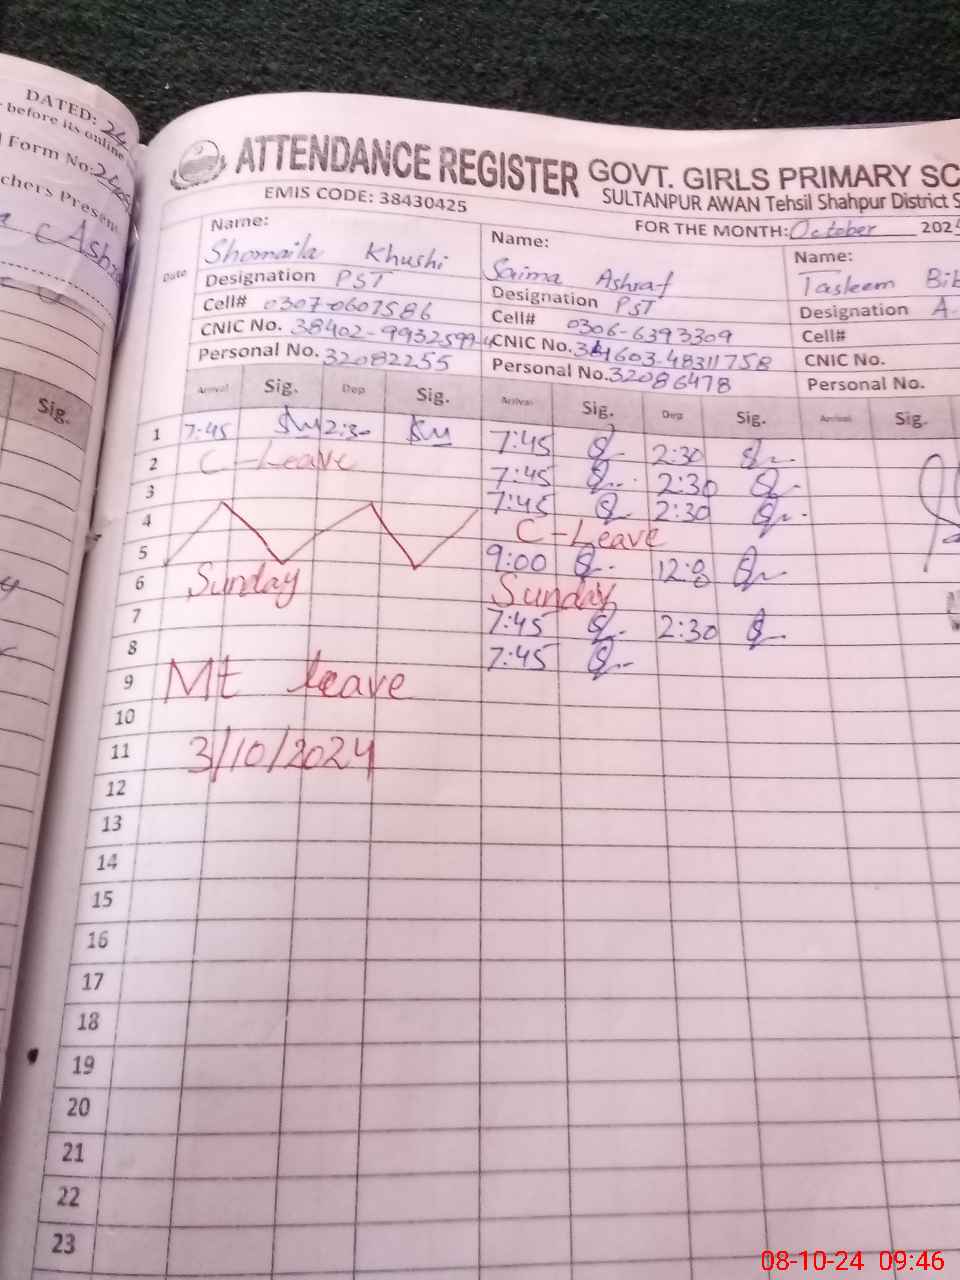 DATED: 24
before its online
Form No. 
chers Present
Ashra
Sig.
ATTENDANCE REGISTER GOVT. GIRLS PRIMARY SC
EMIS CODE: 38430425
SULTANPUR AWAN Tehsil Shahpur District S
FOR THE MONTH: October 202
Date
Name:
Shomaila Khushi
Designation PST
Cell# 0307-0607586
CNIC No. 38402-9932599-4
Personal No. 32082255
Name:
Saima Ashraf
Designation PST
Cell# 0306-6393309
CNIC No. 
Personal No. 32086478
Name:
Tasleem Bib
Designation A-
Cell#
CNIC No.
Personal No.
Arrival Sig. Dep Sig. Arrival Sig. Dep Sig. Arrival Sig.
1 7:45 2:30 7:45 2:30
2 C-Leave 7:45 2:30
3 7:45 2:30
4 C-Leave
5 9:00
6 Sunday Sunday
7 7:45 2:30
8 7:45
9 Mt leave
10
11 3/10/2024
12
13
14
15
16
17
18
19
20
21
22
23
08-10-24 09:46